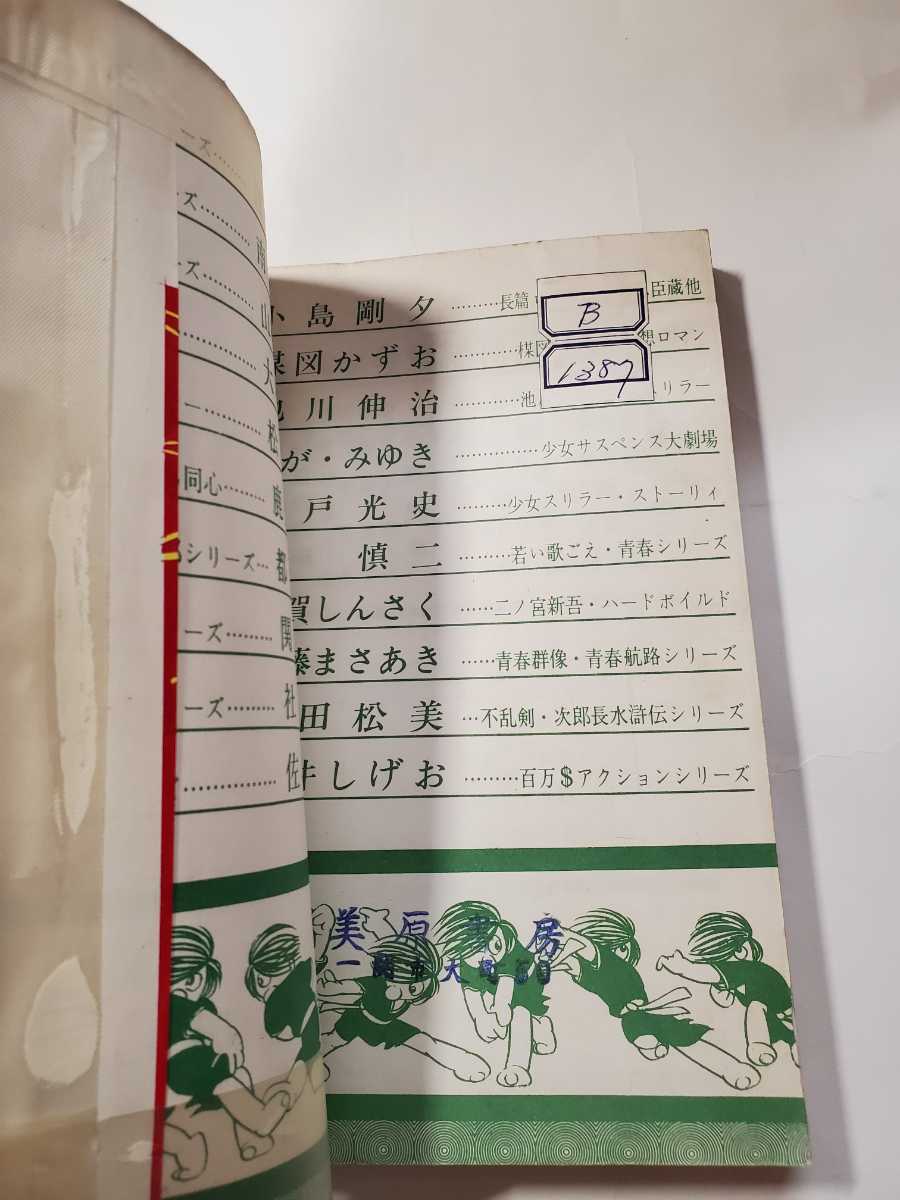 ーズ………
ーズ…………南
ーズ…………山
…………大
ー…………松
同心………鹿
シリーズ…都
ーズ………関
ーズ………社
……………佐
小島剛夕………長篇 臣蔵他
楳図かずお…………楳図 想ロマン
川伸治…………池 リラー
が・みゆき……………少女サスペンス大劇場
戸光史………少女スリラー・ストーリィ
慎二………若い歌ごえ・青春シリーズ
賀しんさく……二ノ宮新吾・ハードボイルド
まさあき……青春群像・青春航路シリーズ
田松美…不乱剣・次郎長水滸伝シリーズ
井しげお………百万$アクションシリーズ
B
1387
美原書房
一関市大町50